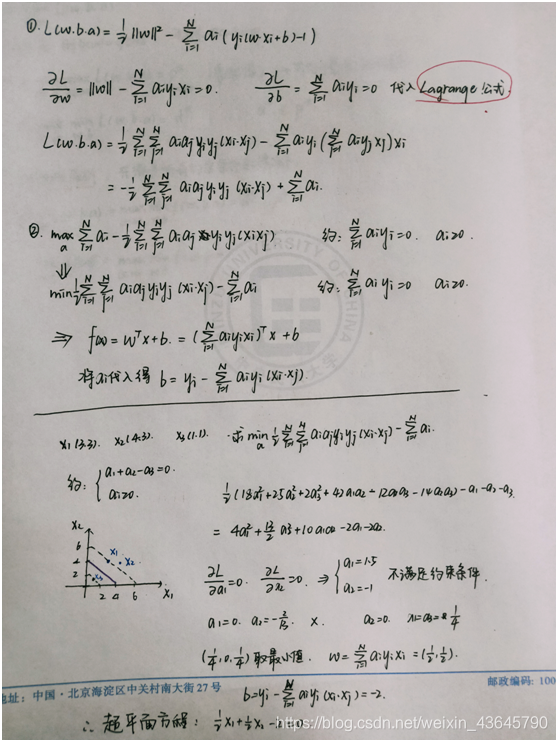 ①. L(w.b.a) = ½||w||² − Σ_{i=1}^{N} ai (yi(w·xi+b)−1)
∂L/∂w = ||w|| − Σ_{i=1}^{N} aiyixi = 0. ∂L/∂b = Σ_{i=1}^{N} aiyi = 0 代入 Lagrange 公式.
L(w.b.a) = ½ Σ_{i=1}^{N} Σ_{j=1}^{N} aiajyiyj(xi·xj) − Σ_{i=1}^{N} aiyi(Σ_{j=1}^{N} aiyjxj)xi
= −½ Σ_{i=1}^{N} Σ_{j=1}^{N} aiajyiyj (xi·xj) + Σ_{i=1}^{N} ai.
②. max_a Σ_{i=1}^{N} ai − ½ Σ_{i=1}^{N} Σ_{j=1}^{N} aiaj yiyj(xixj) 约: Σ_{i=1}^{N} aiyi=0. ai≥0.
⇓
min ½ Σ_{i=1}^{N} Σ_{j=1}^{N} aiajyiyj (xi·xj) − Σ_{i=1}^{N} ai 约: Σ_{i=1}^{N} aiyi=0 ai≥0.
⇒ f(x) = wᵀx+b. = (Σ_{i=1}^{N} aiyixi)ᵀx + b
将ai代入得 b = yj − Σ_{i=1}^{N} aiyi(xi·xj).
x1(3.3). x2(4.3). x3(1.1). 求 min_a ½ Σ_{i=1}^{N} Σ_{j=1}^{N} aiajyiyj(xi·xj) − Σ_{i=1}^{N} ai.
约: { a1+a2−a3=0.
ai≥0.
½(18a1²+25a2²+2a3²+42a1a2−12a1a3−14a2a3)−a1−a2−a3.
= 4a1²+13/2 a2²+10a1a2−2a1−2a2.
X2
6
4
2
x1
x2
x3
2 4 6 X1
∂L/∂a1=0. ∂L/∂a2=0. ⇒ { a1=1.5
a2=−1
不满足约束条件.
a1=0. a2=−2/13. X. a2=0. a1=a3=1/4
(1/4,0,1/4) 取最小值. w = Σ_{i=1}^{N} aiyixi = (½,½).
地址: 中国·北京海淀区中关村南大街27号 邮政编码: 100
b = yj − Σ_{i=1}^{N} aiyi(xi·xj) = −2.
∴ 超平面方程: ½x1+½x2−2=0.
https://blog.csdn.net/weixin_43645790